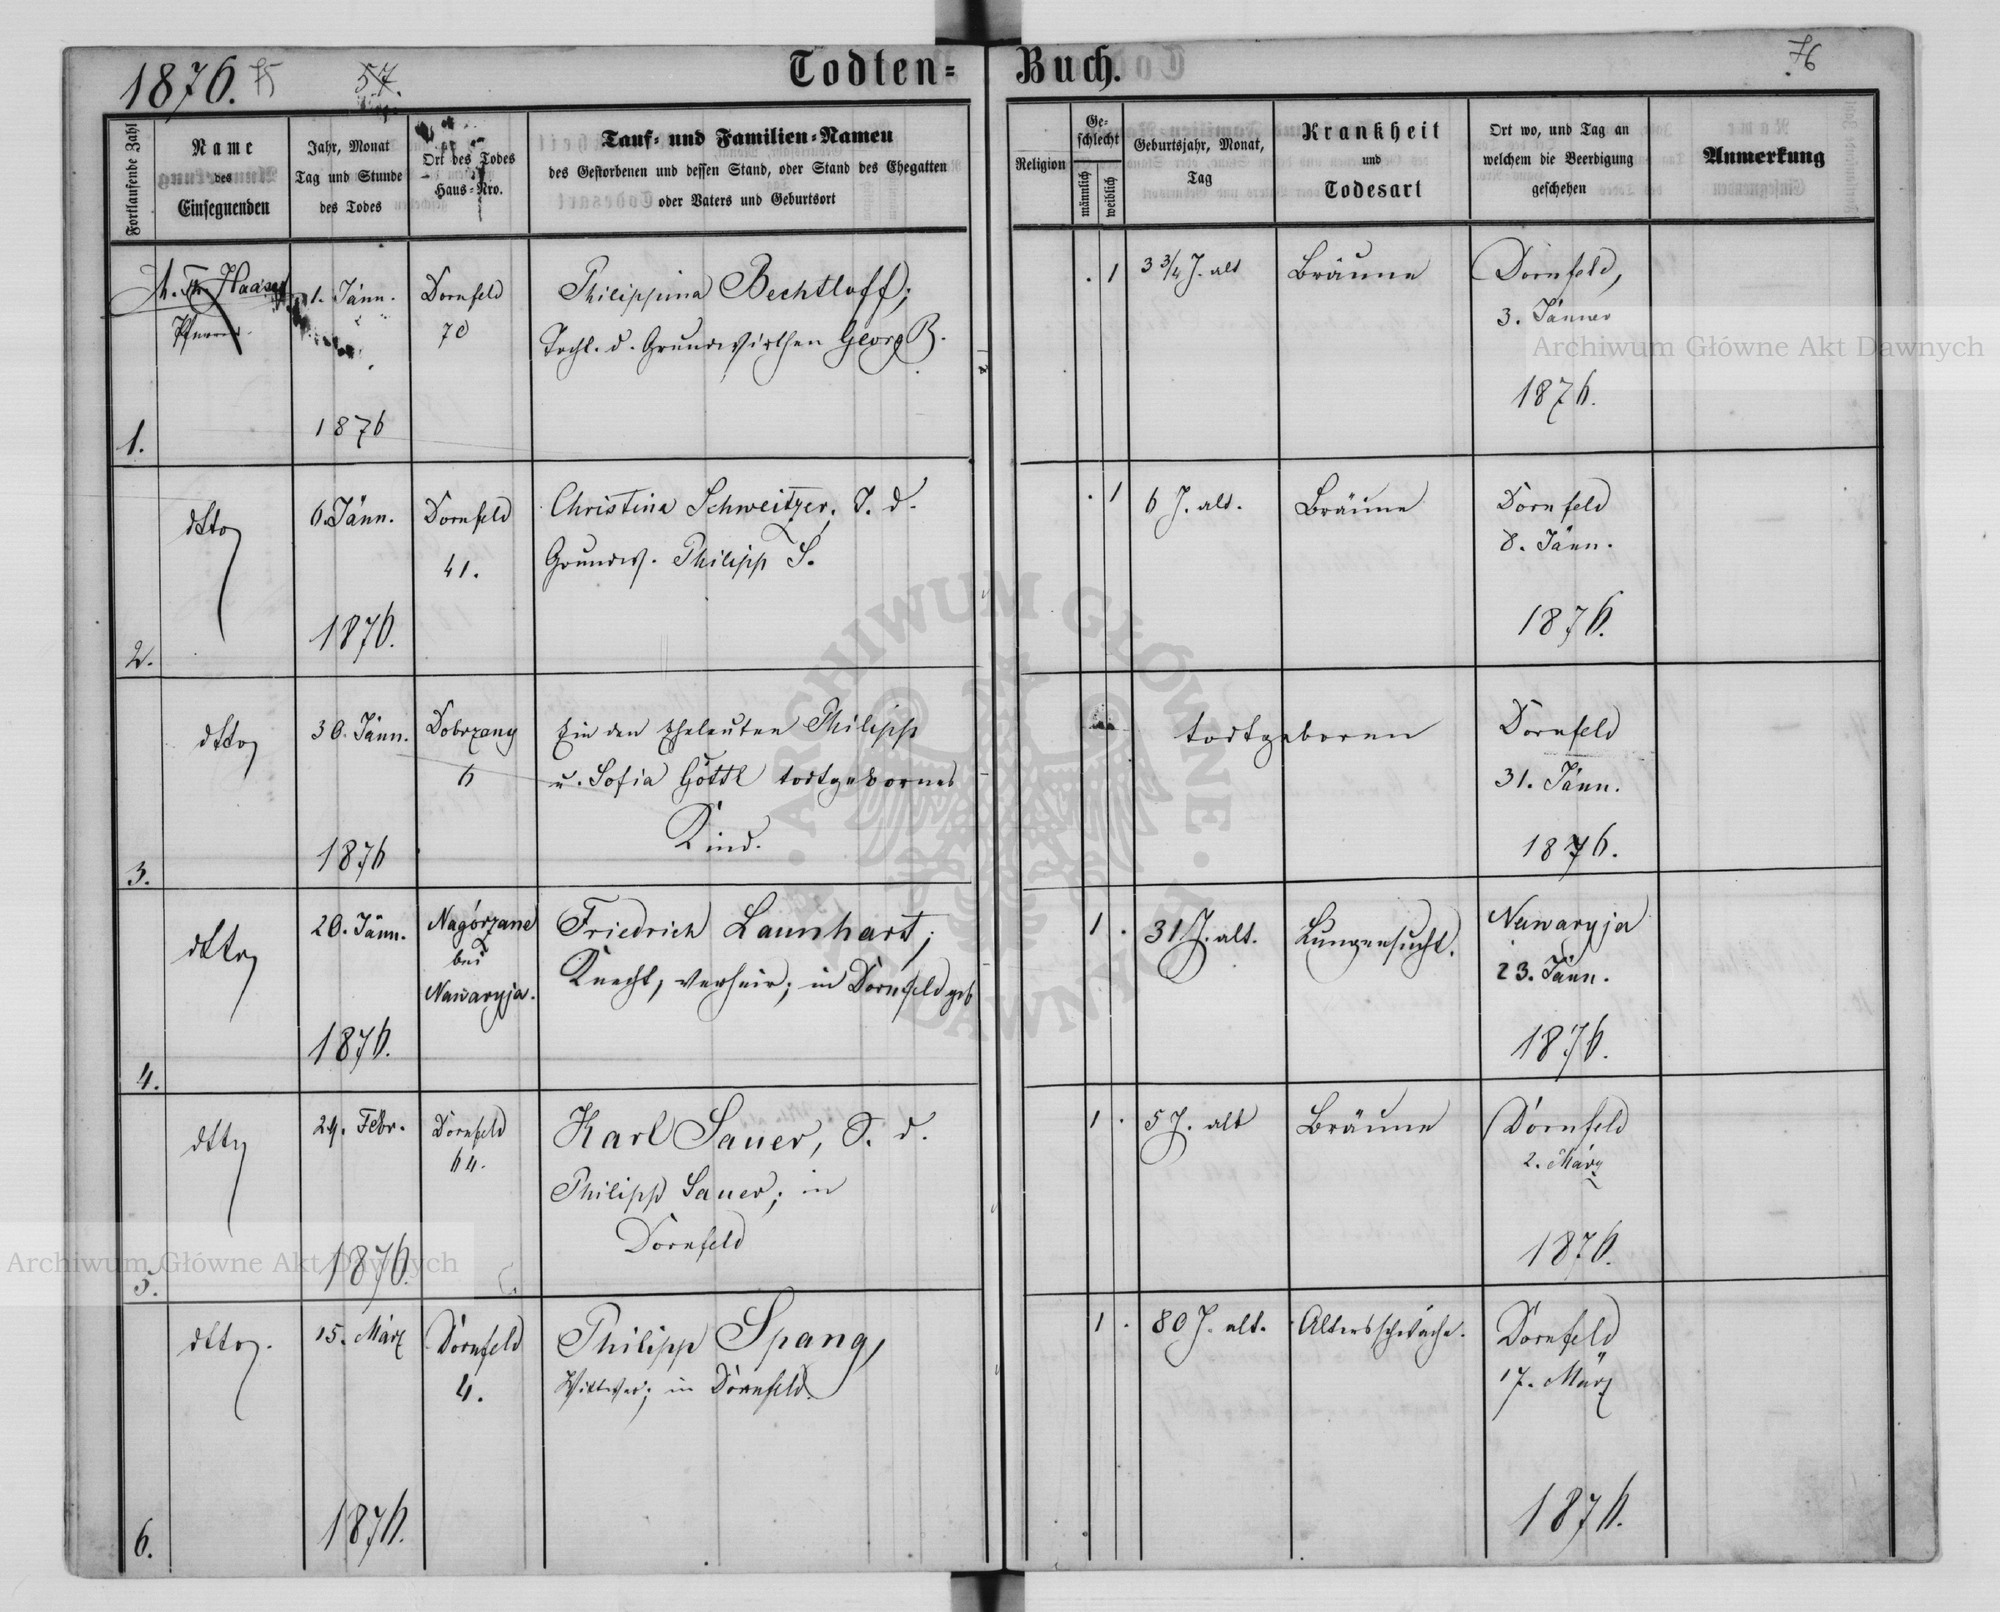 1876. 75 57. Todten-Buch. 76
Fortlaufende Zahl
Name
des
Einsegnenden
Jahr, Monat
Tag und Stunde
des Todes
Ort des Todes
Haus-Nro.
Tauf- und Familien-Namen
des Gestorbenen und dessen Stand, oder Stand des Ehegatten
oder Vaters und Geburtsort
Religion
Ge-
schlecht
männlich
weiblich
Geburtsjahr, Monat,
Tag
Krankheit
und
Todesart
Ort wo, und Tag an
welchem die Beerdigung
geschehen
Anmerkung
1.
Haase
Pfarrer
1. Jänn.
1876
Dornfeld
70
Philippina Bechtloff;
Tocht. d. Grundwirthen Georg B.
. 1
3 3/4 J. alt
Bräune
Dornfeld,
3. Jänner
1876.
2.
dtto
6. Jänn.
1876.
Dornfeld
41.
Christina Schweitzer, T. d.
Grundw. Philipp S.
. 1
6 J. alt.
Bräune
Dornfeld
8. Jänn.
1876.
3.
dtto
30. Jänn.
1876
Dobrzany
6
Ein den Eheleuten Philipp
u. Sofia Göttl todtgebornes
Kind.
todtgeboren
Dornfeld
31. Jänn.
1876.
4.
dtto
20. Jänn.
1876.
Nagórzane
bei
Nawaryja.
Friedrich Launhart;
Knecht, verheir; in Dornfeld geb
1 .
31 J. alt.
Lungensucht.
Nawaryja
23. Jänn.
1876.
5.
dtto
29. Febr.
1876.
Dornfeld
64.
Karl Sauer, S. d.
Philipp Sauer; in
Dornfeld
1 .
5 J. alt
Bräune
Dornfeld
2. März
1876.
6.
dtto.
15. März
1876.
Dornfeld
4.
Philipp Spang,
Wittwer; in Dornfeld.
1 .
80 J. alt.
Altersschwäche.
Dornfeld
17. März
1876.
Archiwum Główne Akt Dawnych
Archiwum Główne Akt Dawnych
ARCHIWUM GŁÓWNE AKT DAWNYCH